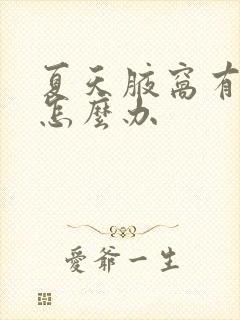 夏天腋窩有
怎麼办
愛爺一生